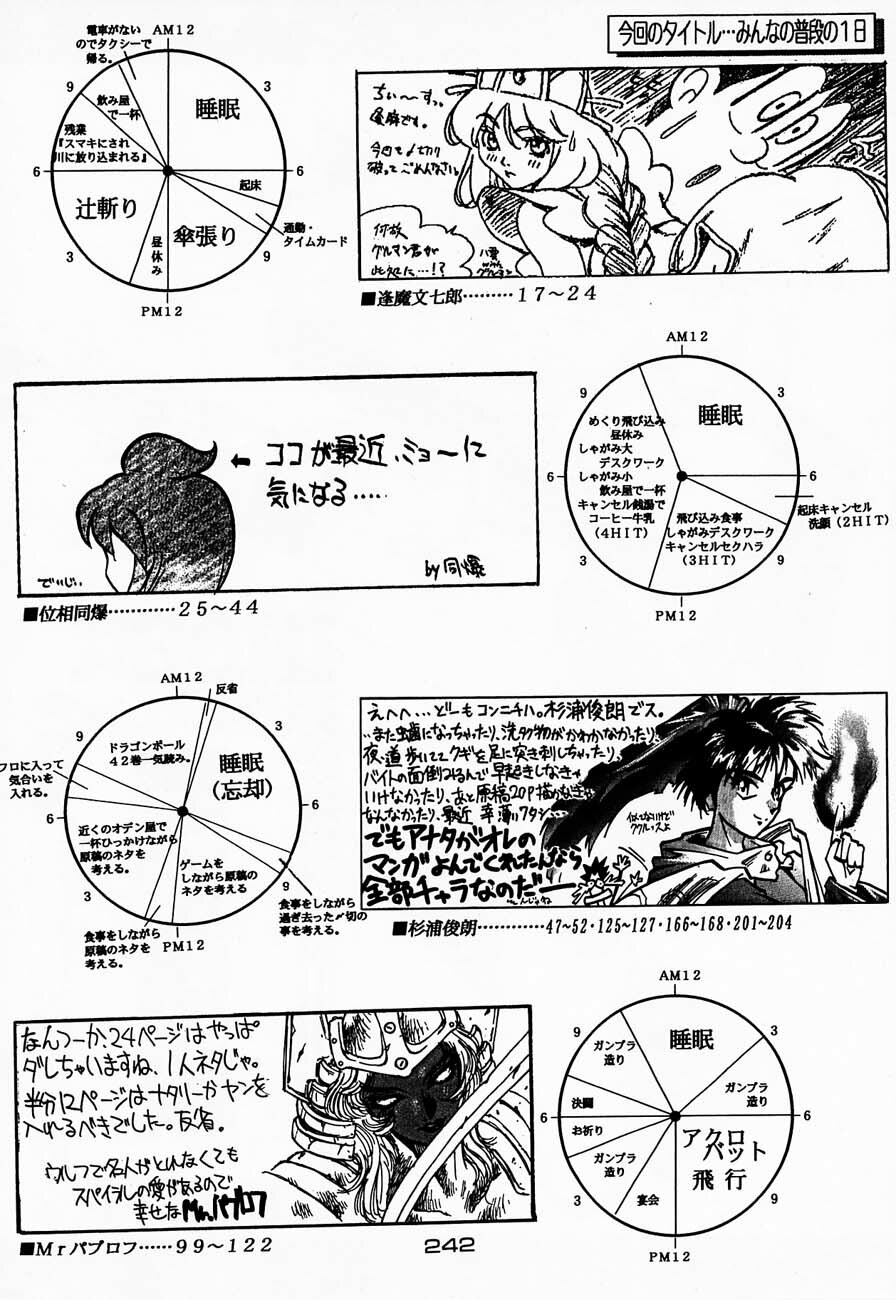 今回のタイトル…みんなの普段の１日
AM12
3
6
9
PM12
3
6
9
電車がない
のでタクシーで
帰る。
睡眠
飲み屋
で一杯
残業
『スマキにされ
川に放り込まれる』
起床
辻斬り
昼休み
傘張り
通勤・
タイムカード
ちぃーすっ。
逢麻です。
今回も〆切り
破ってごめんなさい。
何故
グルマン君が
此処に…!?
■逢魔文七郎………１７～２４
ココが最近、ミョ～に
気になる……
でいじい
by同爆
■位相同爆…………２５～４４
AM12
3
6
9
PM12
3
6
9
睡眠
めくり飛び込み
昼休み
しゃがみ大
デスクワーク
しゃがみ小
飲み屋で一杯
キャンセル銭湯で
コーヒー牛乳
（４HIT）
飛び込み食事
しゃがみデスクワーク
キャンセルセクハラ
（３HIT）
起床キャンセル
洗顔（２HIT）
AM12
反省
3
6
9
PM12
3
6
9
ドラゴンボール
４２巻一気読み。
睡眠
（忘却）
フロに入って
気合いを
入れる。
近くのオデン屋で
一杯ひっかけながら
原稿のネタを
考える。
ゲームを
しながら原稿の
ネタを考える
食事をしながら
過ぎ去った〆切の
事を考える。
食事をしながら
原稿のネタを
考える。
えへへ…、どーもコンニチハ。杉浦俊朗でス。
…また虫歯になっちゃったり、洗タク物がかわかなかったり、
夜、道歩いててクギを足に突き刺しちゃったり、
バイトの面倒みるんで早起きしなきゃ
いけなかったり、あと原稿20P描かなきゃ
なんなかったり、最近 幸薄いワタシ…
でもアナタがオレの
マンガよんでくれたんなら
全部チャラなのだー
似てないけど
ククルスよ
■杉浦俊朗…………47～52・125～127・166～168・201～204
なんつーか、24ページはやっぱ
ダレちゃいますね、1人ネタじゃ。
半分12ページはナタリーかヤンを
入れるべきでした。反省。
ウルフで名人がとれなくても
スパイラルの愛があるので
幸せなMr.パブロフ
■Ｍｒパブロフ……９９～１２２
AM12
3
6
9
PM12
3
6
9
睡眠
ガンプラ
造り
ガンプラ
造り
決闘
お祈り
ガンプラ
造り
宴会
アクロ
バット
飛行
242